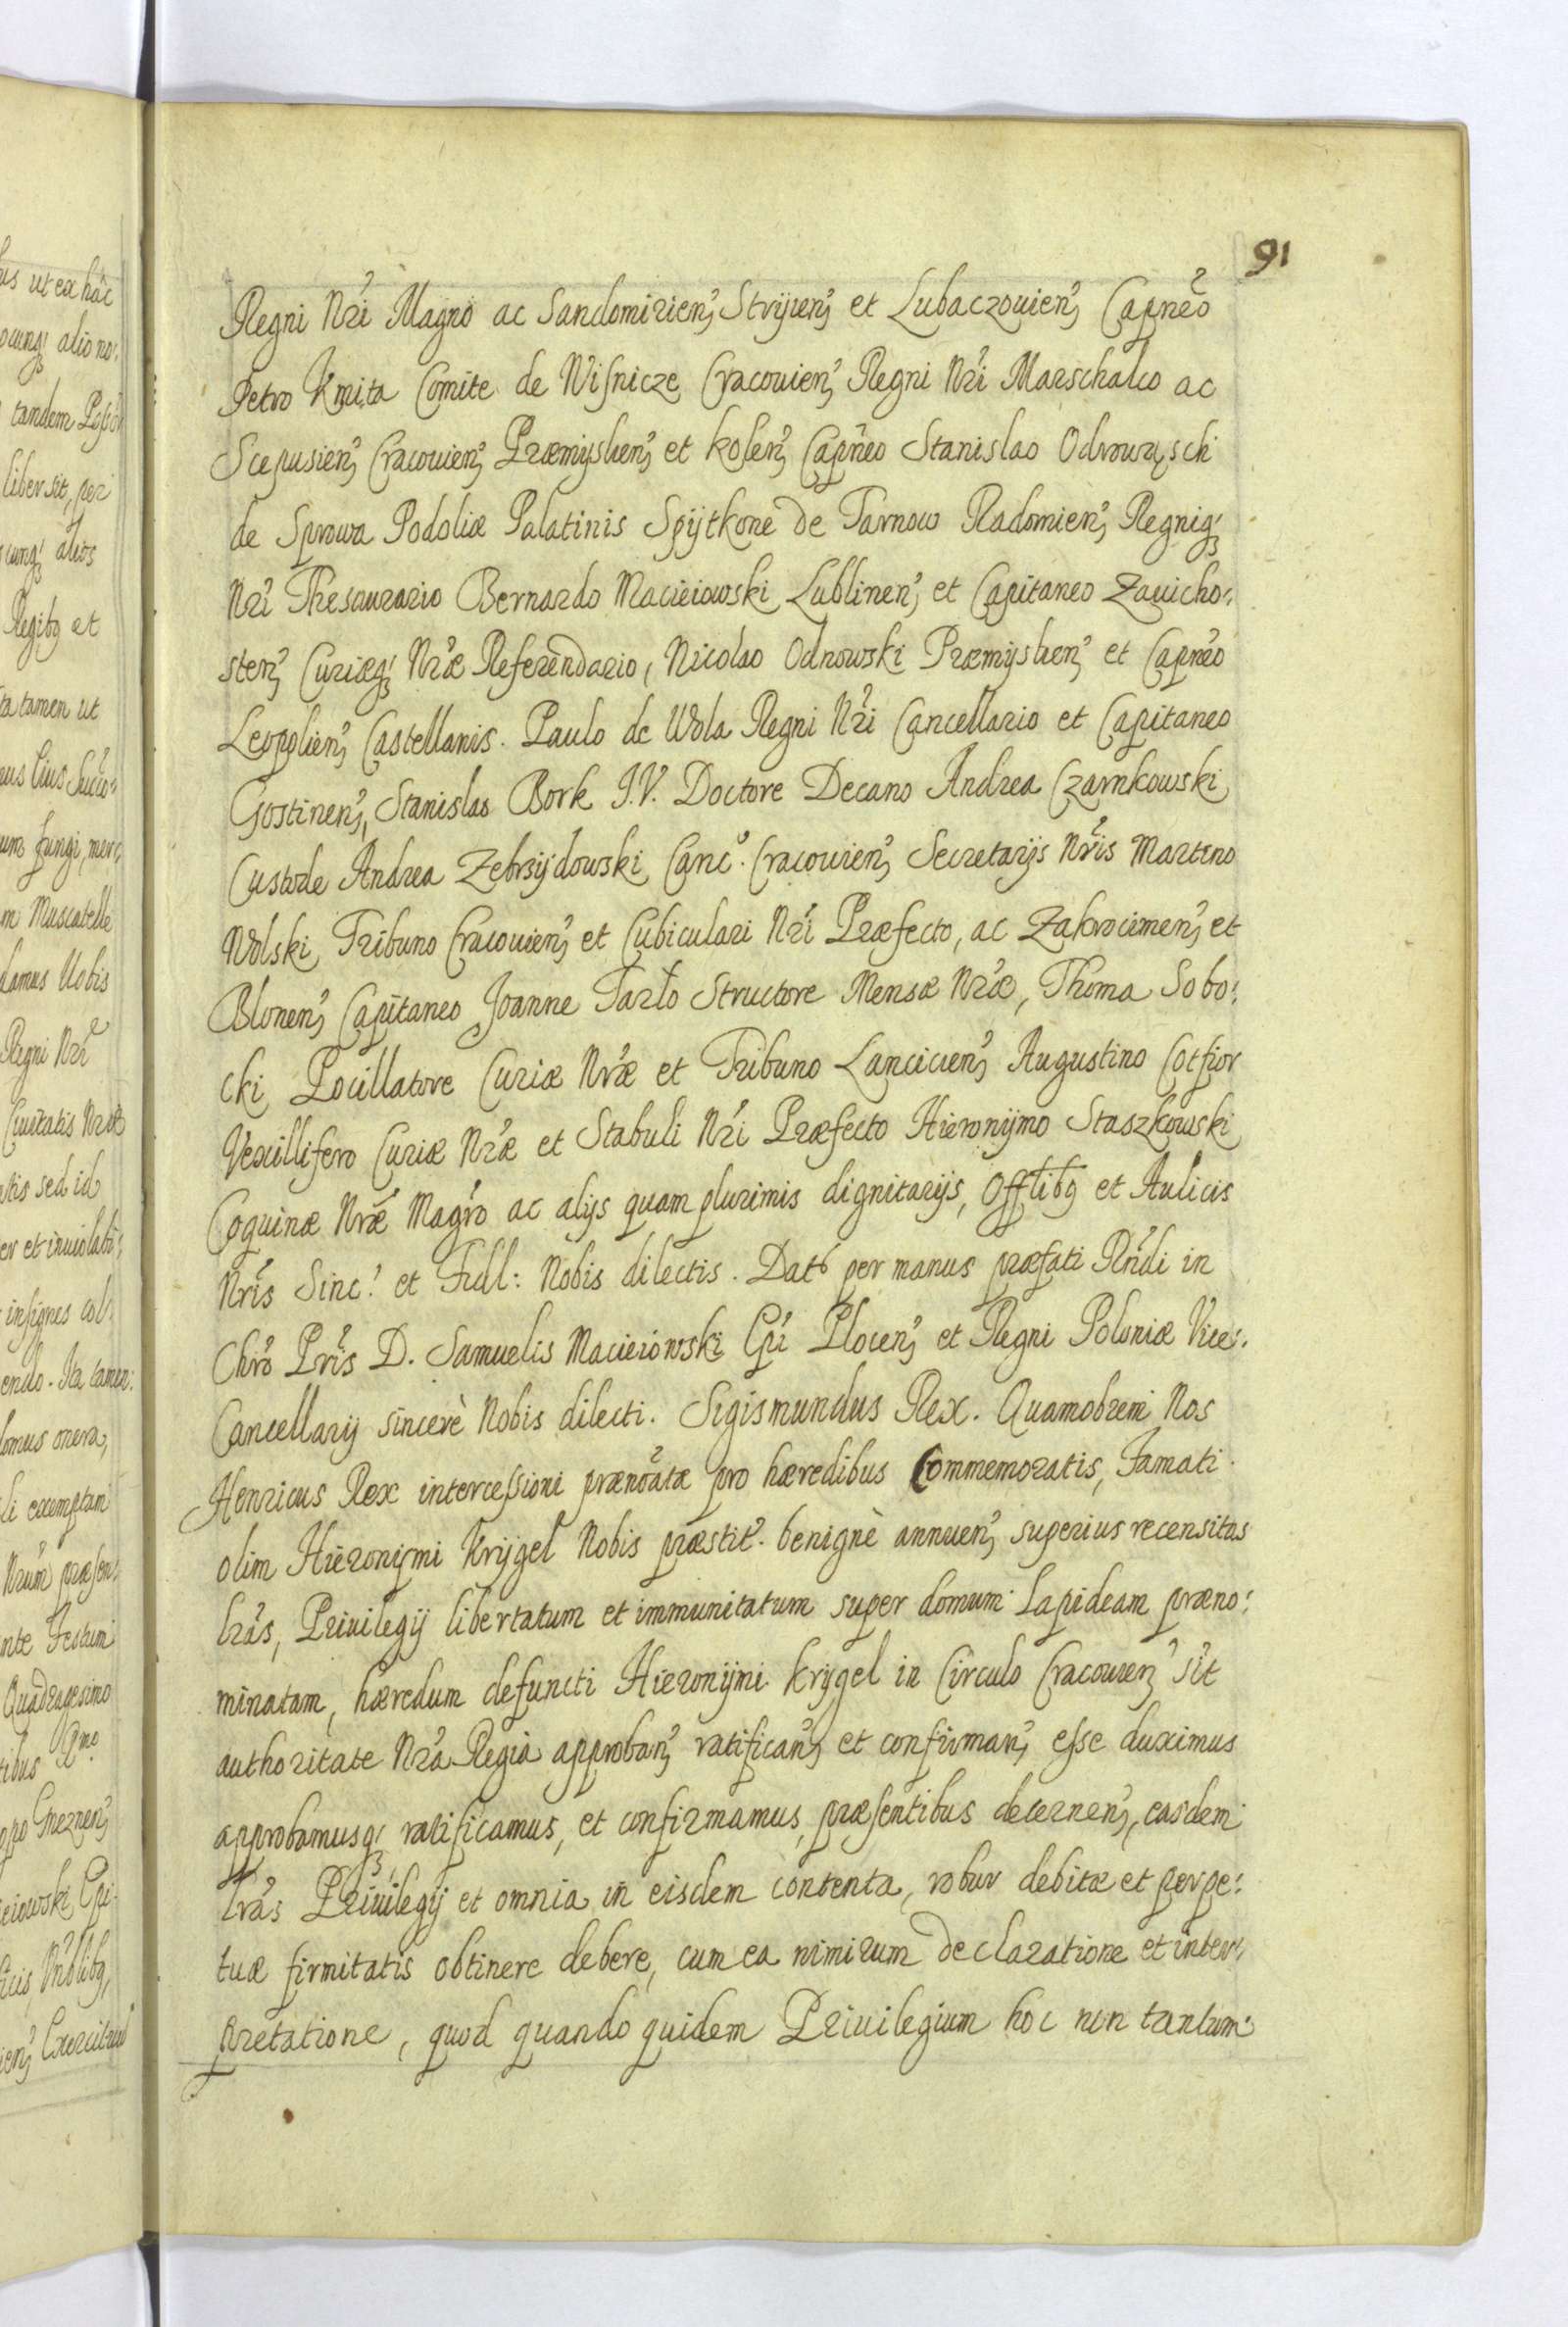 91
Regni Nri Magno ac Sandomirien, Stryien, et Lubaczouien, Capneo
Petro Kmita Comite de Wisnicze Cracouien, Regni Nri Marschalco ac
Scepusien, Cracouien, Præmyslien, et kolen, Capneo Stanislao Odrowąsch
de Sprowa Podoliæ Palatinis Spytkone de Tarnow Radomien, Regniq,
Nri Thesaurario Bernardo Macieiowski Lublinen, et Capitaneo Zauicho:
sten, Curiæq, Nræ Referendario, Nicolao Odnowski Præmyslien, et Capneo
Leopolien, Castellanis. Paulo de Wola Regni Nri Cancellario et Capitaneo
Gostinen, Stanislao Bork I.V. Doctore Decano Andrea Czarnkowski
Custode Andrea Zebrzydowski Canc. Cracouien, Secretarijs Nris Martino
Wolski Tribuno Cracouien, et Cubiculari Nri Præfecto, ac Zakrocimen, et
Blonen, Capitaneo Joanne Tarło Structore Mensæ Nræ, Thoma Sobo:
cki Pocillatore Curiæ Nræ et Tribuno Lancicien, Augustino Cotfior
Vexillifero Curiæ Nræ et Stabuli Nri Præfecto Hieronymo Staszkowski
Coquinæ Nræ Magro ac alijs quam plurimis dignitarijs, Offlibq et Aulicis
Nris Sinc. et Fidl: Nobis dilectis. Dat per manus præfati Rndi in
Chro Pris D. Samuelis Macieiowski Epi Plocen, et Regni Poloniæ Vice:
Cancellarij sincerè Nobis dilecti. Sigismundus Rex. Quamobrem Nos
Henricus Rex intercessioni prænoatæ pro hæredibus Commemoratis, Famati
olim Hieronymi Krygel Nobis præstit. benignè annuen, superius recensitas
lras, Priuilegij libertatum et immunitatum super domum Lapideam præno:
minatam, hæredum defuncti Hieronymi Krygel in Circulo Cracouien, sit
authoritate Nra Regia approban, ratifican, et confirman, esse duximus
approbamusq, ratificamus, et confirmamus, præsentibus decernen, easdem
lras Priuilegij et omnia in eisdem contenta, robur debitæ et perpe:
tuæ firmitatis obtinere debere, cum ea nimirum declaratione et inter:
pretatione, quod quando quidem Priuilegium hoc non tantum